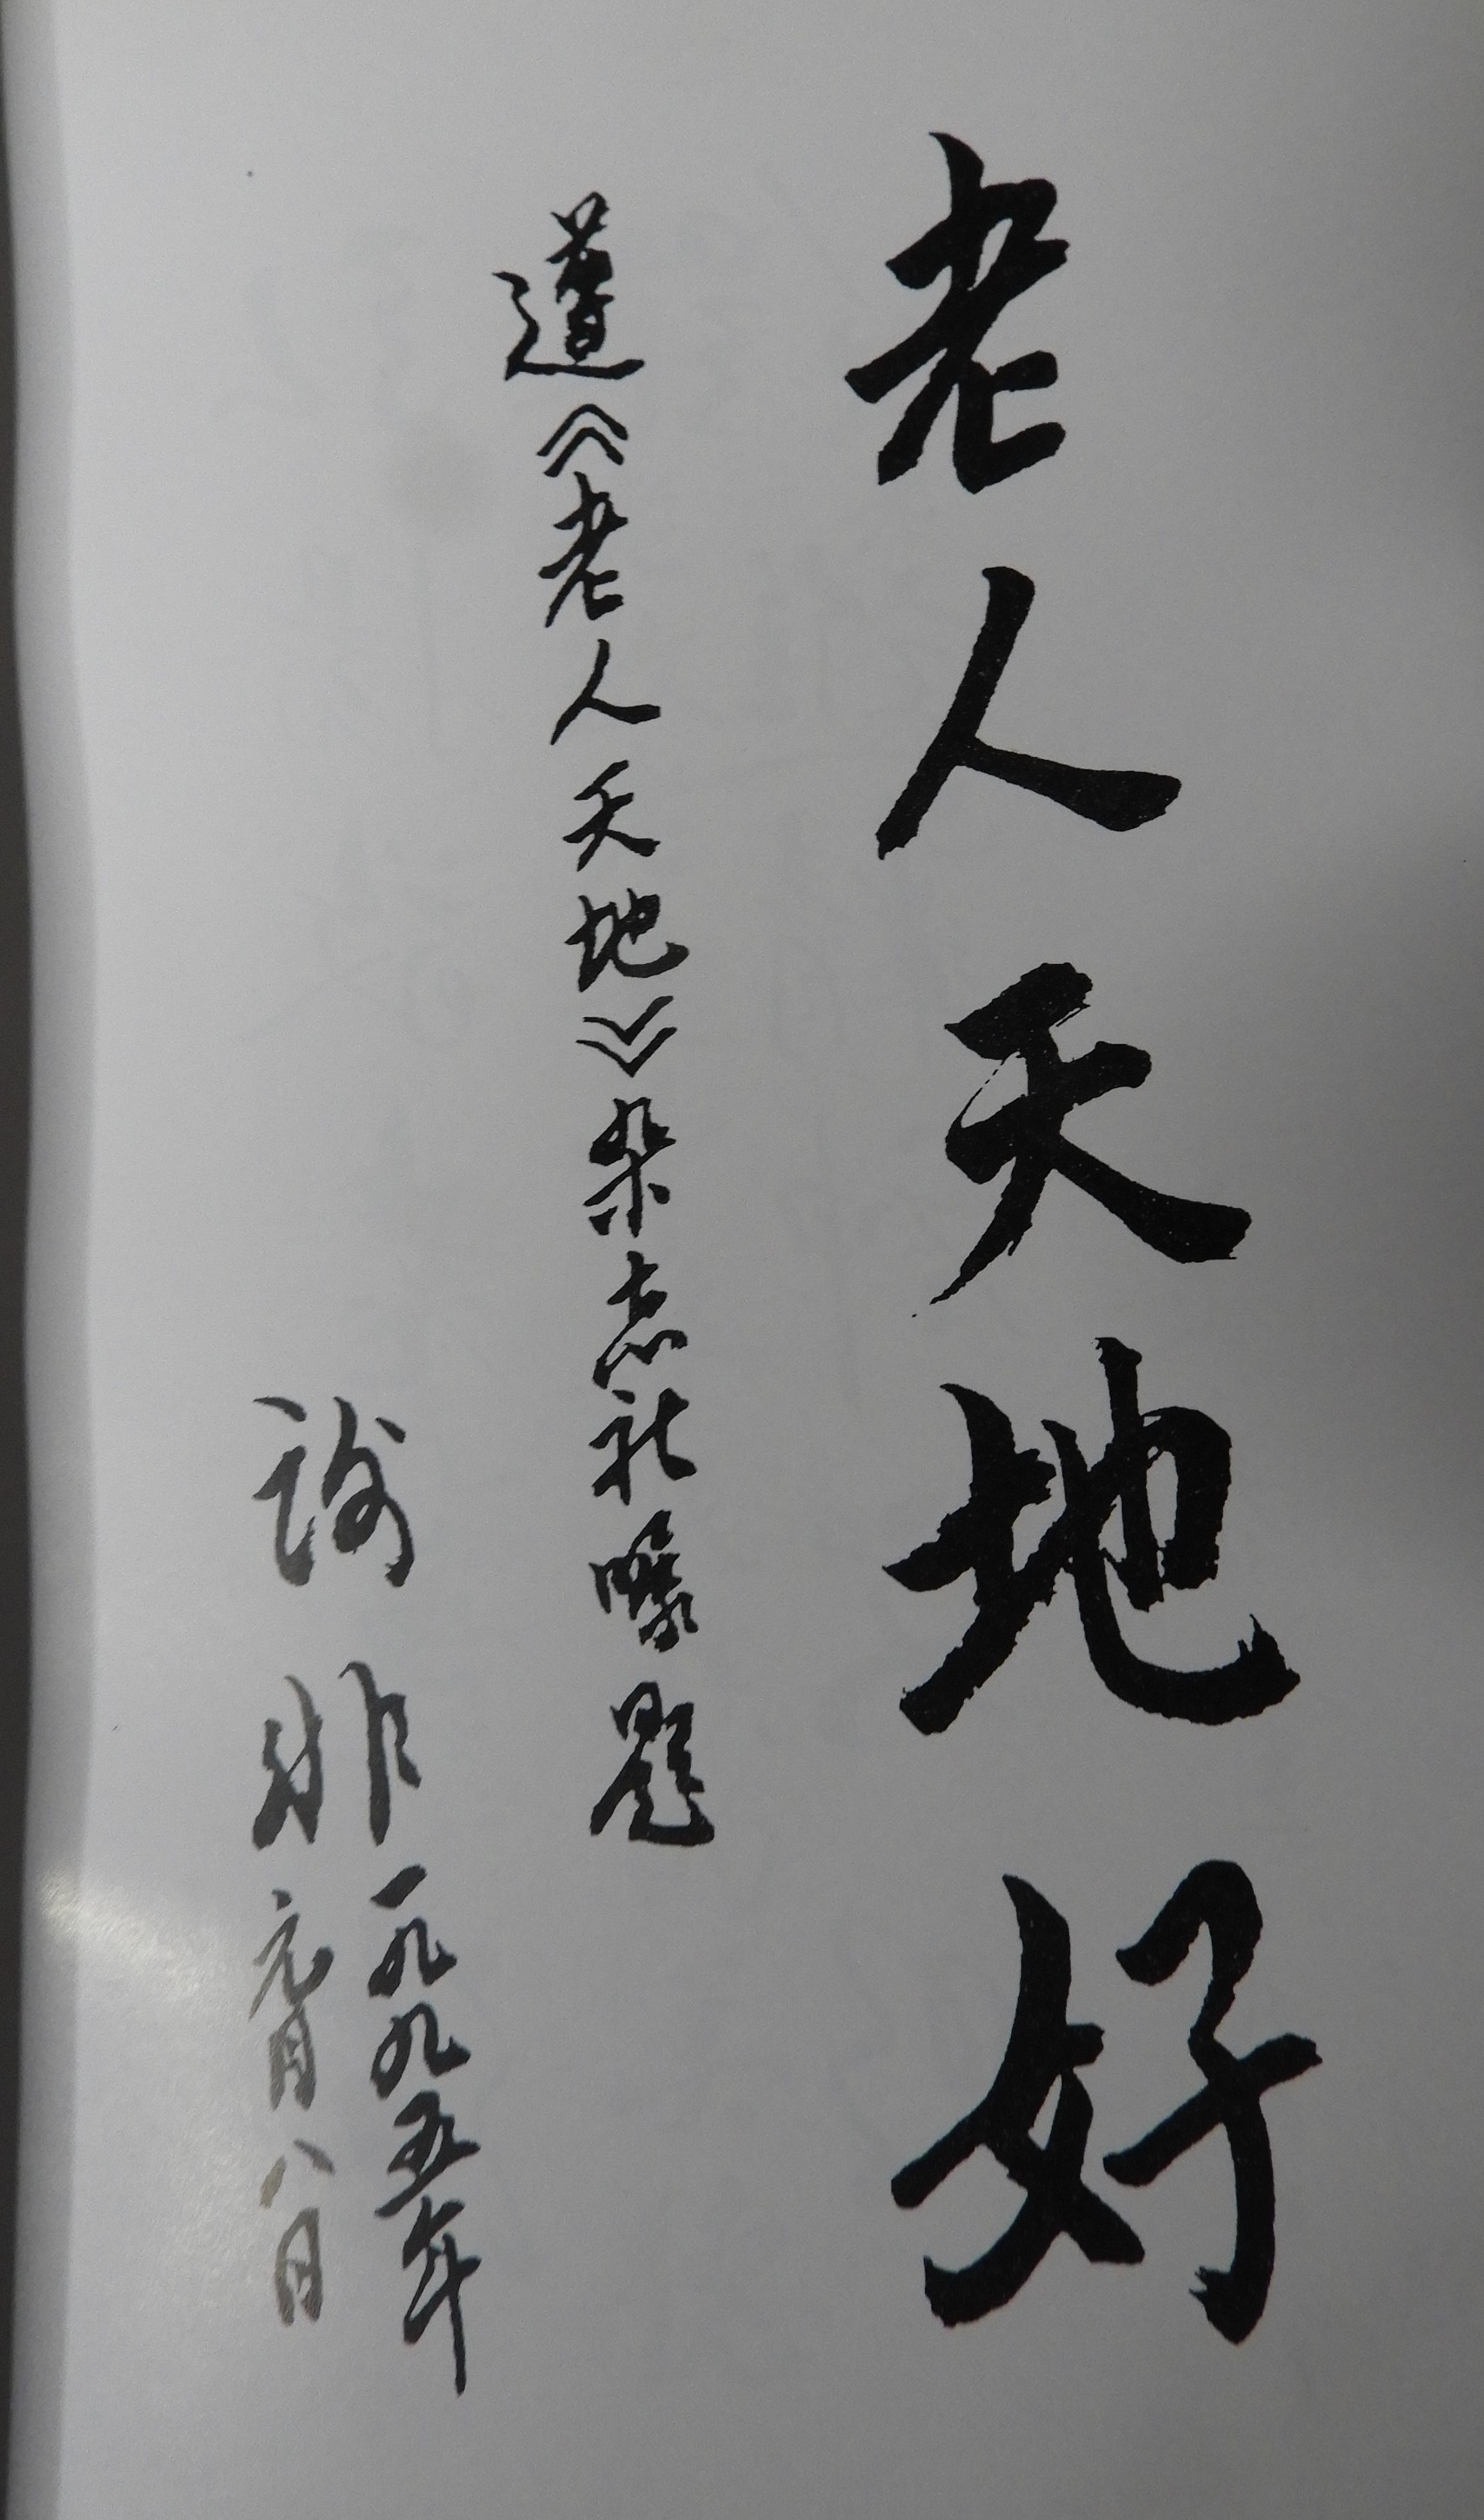 老人天地好
遵《老人天地》杂志社嘱题
谢非
一九九五年
元月八日